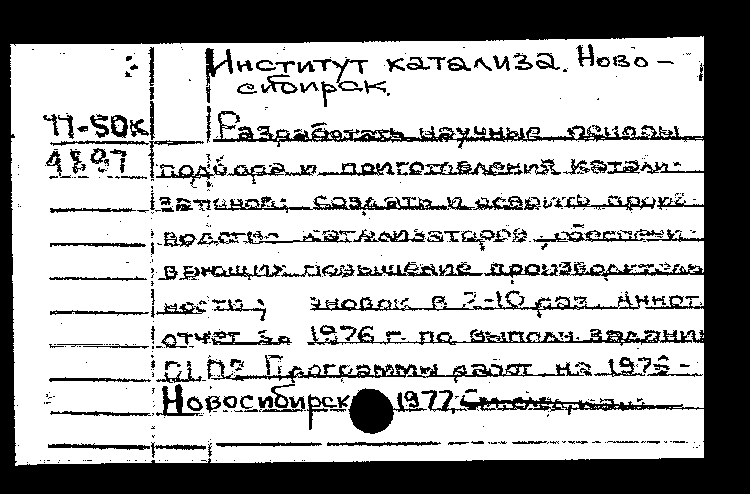 Институт катализа. Ново-
сибирск.
77-50к
4897
Разработать научные основы
подбора и приготовления катали-
заторов; создать и освоить произ-
водство катализаторов, обеспечи-
вающих повышение производитель
ности установок в 2-10 раз. Аннот.
отчет за 1976 г. по выполн. задания
01.02 Программы работ на 1976-
Новосибирск 1977